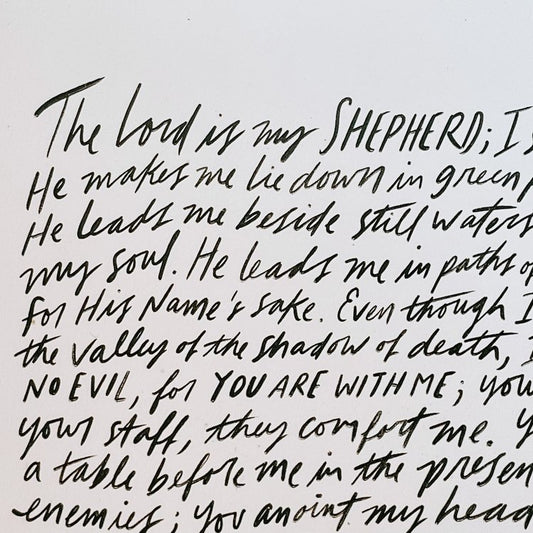 The Lord is my SHEPHERD; I
He makes me lie down in green
He leads me beside still waters
my soul. He leads me in paths
for His Name's sake. Even though I
the valley of the shadow of death,
NO EVIL, for YOU ARE WITH ME; your
your staff, they comfort me.
a table before me in the presen
enemies; you anoint my head